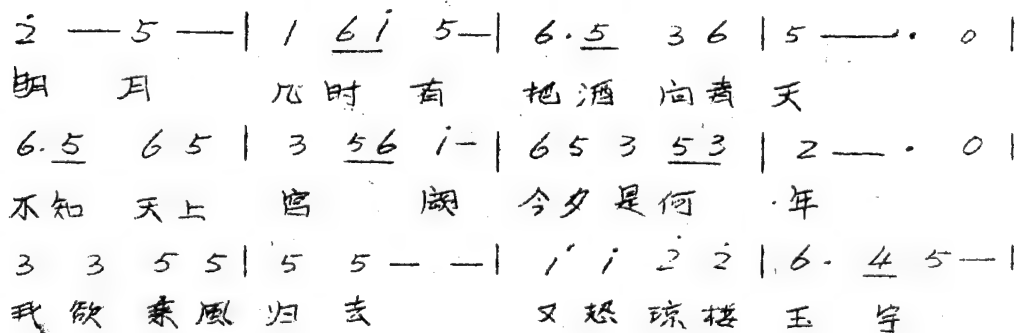 2̇ — 5 — | 1 6i̇ 5— | 6·5 3 6 | 5 —— · 0 |
明 月 几时 有 把酒 问青 天
6·5 6 5 | 3 56 i̇— | 6 5 3 53 | 2 — · 0 |
不知 天上 宫 阙 今夕是何 年
3 3 5 5 | 5 5 — — | i̇ i̇ 2̇ 2̇ | 6· 4 5— |
我 欲 乘風 归 去 又 恐 琼楼 玉 宇